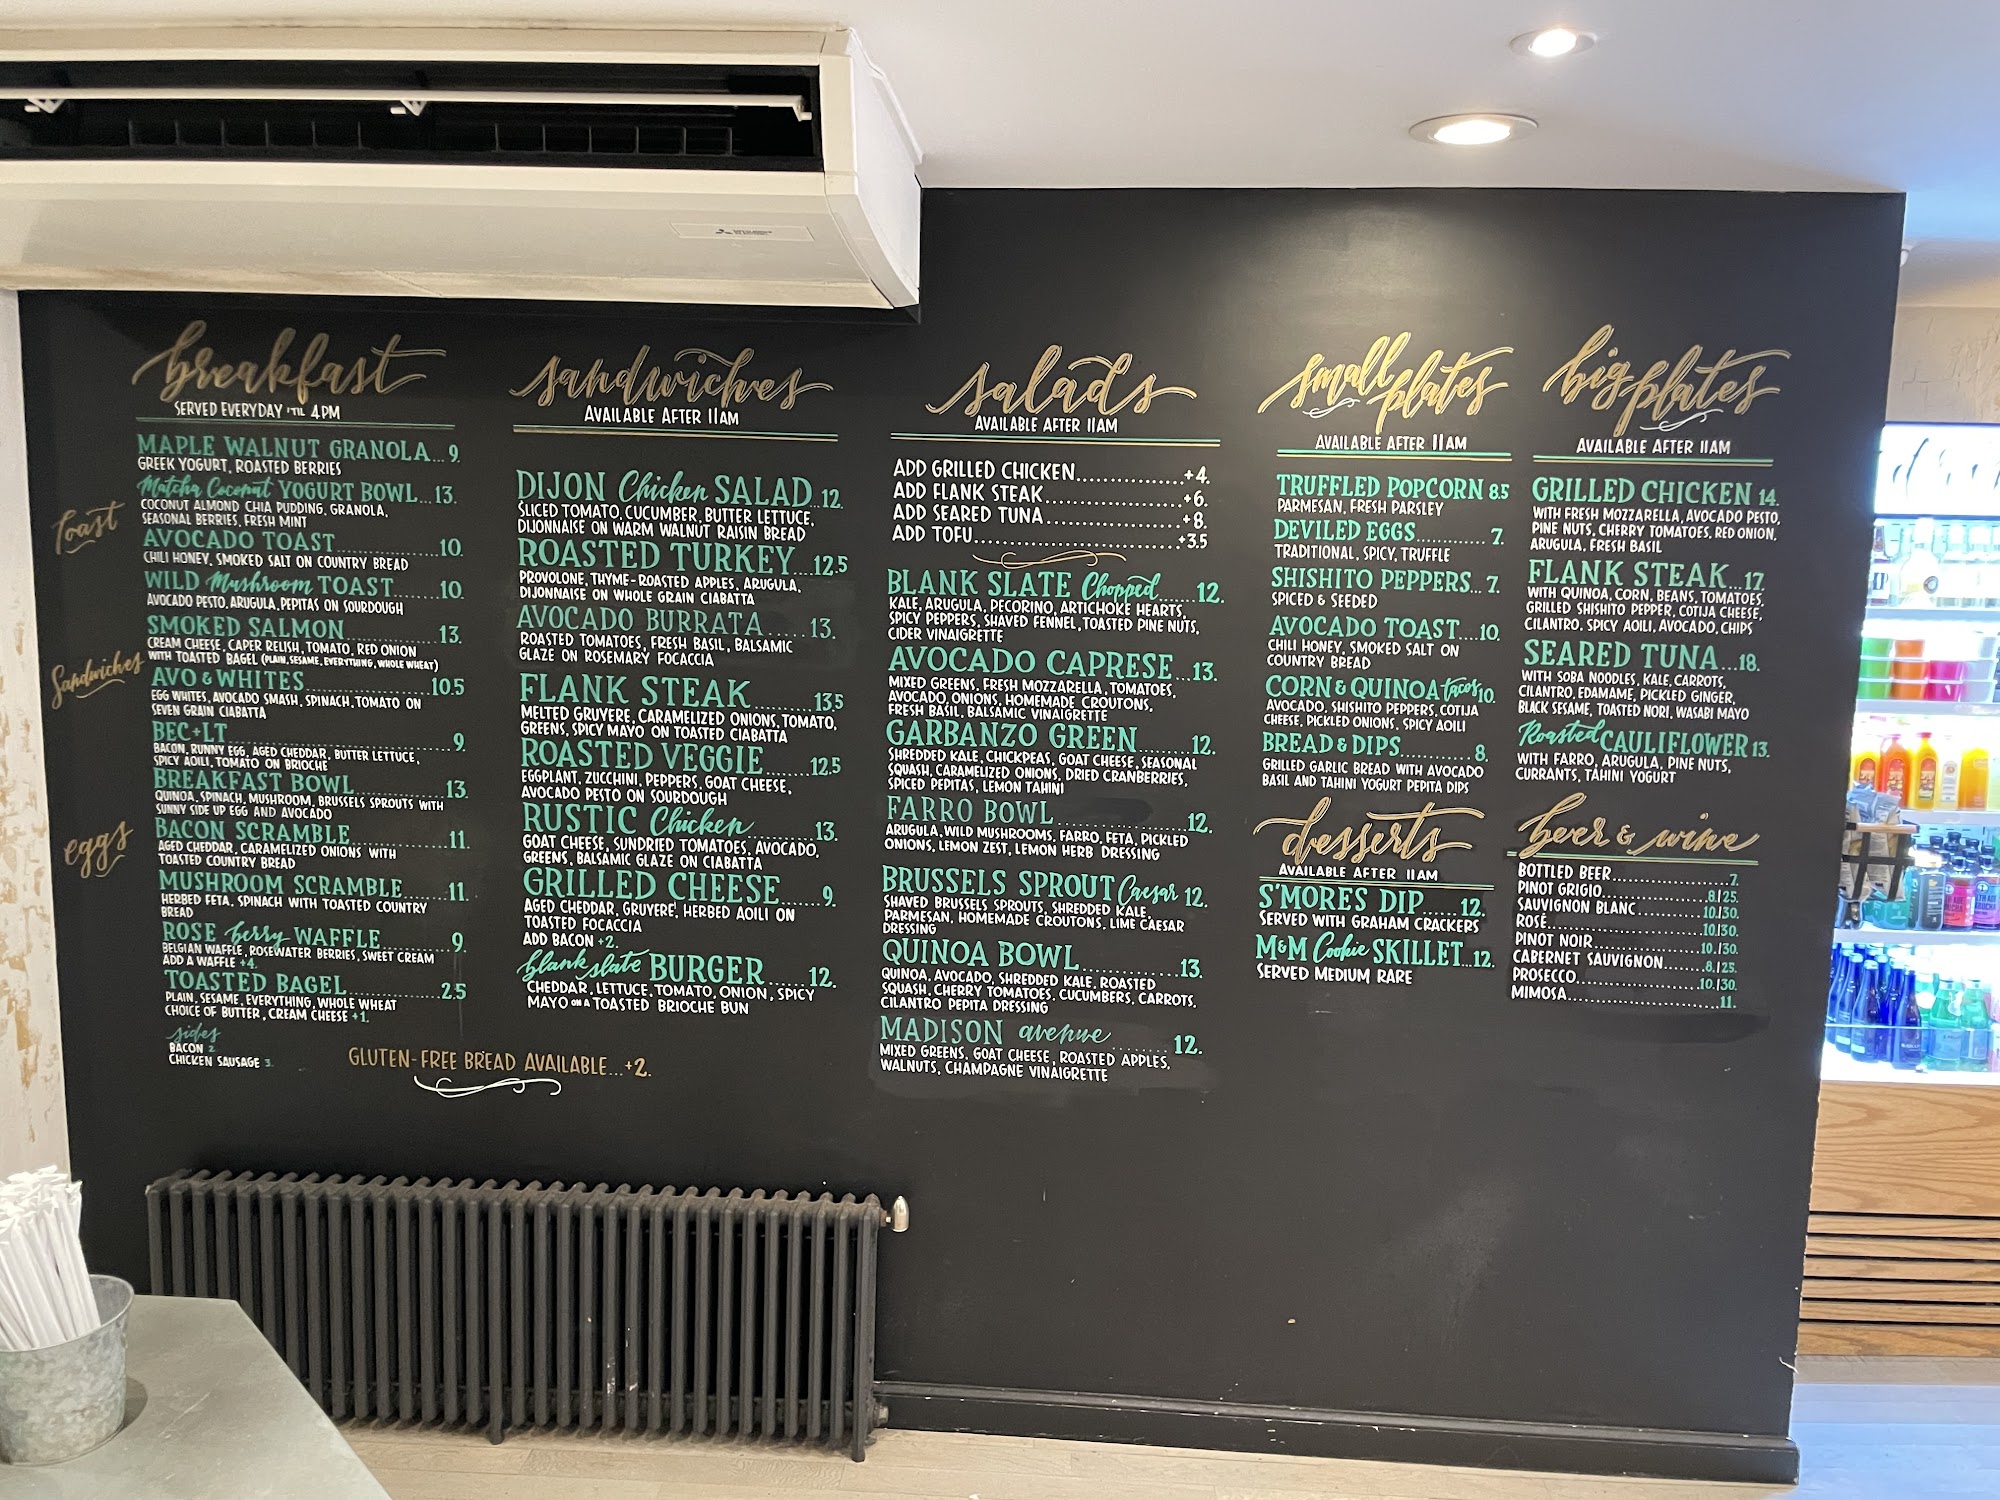 breakfast
SERVED EVERYDAY 'TIL 4PM
MAPLE WALNUT GRANOLA...9.
GREEK YOGURT, ROASTED BERRIES
Matcha Coconut YOGURT BOWL...13.
COCONUT ALMOND CHIA PUDDING, GRANOLA,
SEASONAL BERRIES, FRESH MINT
Toast
AVOCADO TOAST...............10.
CHILI HONEY, SMOKED SALT ON COUNTRY BREAD
WILD Mushroom TOAST.......10.
AVOCADO PESTO, ARUGULA, PEPITAS ON SOURDOUGH
Sandwiches
SMOKED SALMON..............13.
CREAM CHEESE, CAPER RELISH, TOMATO, RED ONION
WITH TOASTED BAGEL (PLAIN, SESAME, EVERYTHING, WHOLE WHEAT)
AVO & WHITES..................10.5
EGG WHITES, AVOCADO SMASH, SPINACH, TOMATO ON
SEVEN GRAIN CIABATTA
BEC+LT................................9.
BACON, RUNNY EGG, AGED CHEDDAR, BUTTER LETTUCE,
SPICY AOILI, TOMATO ON BRIOCHE
eggs
BREAKFAST BOWL..............13.
QUINOA, SPINACH, MUSHROOM, BRUSSELS SPROUTS WITH
SUNNY SIDE UP EGG AND AVOCADO
BACON SCRAMBLE...............11.
AGED CHEDDAR, CARAMELIZED ONIONS WITH
TOASTED COUNTRY BREAD
MUSHROOM SCRAMBLE.......11.
HERBED FETA, SPINACH WITH TOASTED COUNTRY
BREAD
ROSE berry WAFFLE..........9.
BELGIAN WAFFLE, ROSEWATER BERRIES, SWEET CREAM
ADD A WAFFLE +4.
TOASTED BAGEL..............2.5
PLAIN, SESAME, EVERYTHING, WHOLE WHEAT
CHOICE OF BUTTER, CREAM CHEESE +1.
sides
BACON 2.
CHICKEN SAUSAGE 3.
sandwiches
AVAILABLE AFTER 11AM
DIJON Chicken SALAD..12.
SLICED TOMATO, CUCUMBER, BUTTER LETTUCE,
DIJONNAISE ON WARM WALNUT RAISIN BREAD
ROASTED TURKEY....12.5
PROVOLONE, THYME-ROASTED APPLES, ARUGULA,
DIJONNAISE ON WHOLE GRAIN CIABATTA
AVOCADO BURRATA.....13.
ROASTED TOMATOES, FRESH BASIL, BALSAMIC
GLAZE ON ROSEMARY FOCACCIA
FLANK STEAK.........13.5
MELTED GRUYERE, CARAMELIZED ONIONS, TOMATO,
GREENS, SPICY MAYO ON TOASTED CIABATTA
ROASTED VEGGIE......12.5
EGGPLANT, ZUCCHINI, PEPPERS, GOAT CHEESE,
AVOCADO PESTO ON SOURDOUGH
RUSTIC Chicken.........13.
GOAT CHEESE, SUNDRIED TOMATOES, AVOCADO,
GREENS, BALSAMIC GLAZE ON CIABATTA
GRILLED CHEESE......9.
AGED CHEDDAR, GRUYERE, HERBED AOILI ON
TOASTED FOCACCIA
ADD BACON +2.
blank slate BURGER......12.
CHEDDAR, LETTUCE, TOMATO, ONION, SPICY
MAYO ON A TOASTED BRIOCHE BUN
GLUTEN-FREE BREAD AVAILABLE...+2.
salads
AVAILABLE AFTER 11AM
ADD GRILLED CHICKEN...............+4.
ADD FLANK STEAK....................+6.
ADD SEARED TUNA....................+8.
ADD TOFU...............................+3.5
BLANK SLATE Chopped.......12.
KALE, ARUGULA, PECORINO, ARTICHOKE HEARTS,
SPICY PEPPERS, SHAVED FENNEL, TOASTED PINE NUTS,
CIDER VINAIGRETTE
AVOCADO CAPRESE...13.
MIXED GREENS, FRESH MOZZARELLA, TOMATOES,
AVOCADO, ONIONS, HOMEMADE CROUTONS,
FRESH BASIL, BALSAMIC VINAIGRETTE
GARBANZO GREEN........12.
SHREDDED KALE, CHICKPEAS, GOAT CHEESE, SEASONAL
SQUASH, CARAMELIZED ONIONS, DRIED CRANBERRIES,
SPICED PEPITAS, LEMON TAHINI
FARRO BOWL...................12.
ARUGULA, WILD MUSHROOMS, FARRO, FETA, PICKLED
ONIONS, LEMON ZEST, LEMON HERB DRESSING
BRUSSELS SPROUT Caesar 12.
SHAVED BRUSSELS SPROUTS, SHREDDED KALE,
PARMESAN, HOMEMADE CROUTONS, LIME CAESAR
DRESSING
QUINOA BOWL...............13.
QUINOA, AVOCADO, SHREDDED KALE, ROASTED
SQUASH, CHERRY TOMATOES, CUCUMBERS, CARROTS,
CILANTRO PEPITA DRESSING
MADISON avenue..........12.
MIXED GREENS, GOAT CHEESE, ROASTED APPLES,
WALNUTS, CHAMPAGNE VINAIGRETTE
small plates
AVAILABLE AFTER 11AM
TRUFFLED POPCORN 8.5
PARMESAN, FRESH PARSLEY
DEVILED EGGS............7.
TRADITIONAL, SPICY, TRUFFLE
SHISHITO PEPPERS...7.
SPICED & SEEDED
AVOCADO TOAST....10.
CHILI HONEY, SMOKED SALT ON
COUNTRY BREAD
CORN & QUINOA tacos 10.
AVOCADO, SHISHITO PEPPERS, COTIJA
CHEESE, PICKLED ONIONS, SPICY AOILI
BREAD & DIPS...........8.
GRILLED GARLIC BREAD WITH AVOCADO
BASIL AND TAHINI YOGURT PEPITA DIPS
desserts
AVAILABLE AFTER 11AM
S'MORES DIP......12.
SERVED WITH GRAHAM CRACKERS
M&M Cookie SKILLET...12.
SERVED MEDIUM RARE
big plates
AVAILABLE AFTER 11AM
GRILLED CHICKEN 14.
WITH FRESH MOZZARELLA, AVOCADO PESTO,
PINE NUTS, CHERRY TOMATOES, RED ONION,
ARUGULA, FRESH BASIL
FLANK STEAK...17.
WITH QUINOA, CORN, BEANS, TOMATOES,
GRILLED SHISHITO PEPPER, COTIJA CHEESE,
CILANTRO, SPICY AOILI, AVOCADO, CHIPS
SEARED TUNA...18.
WITH SOBA NOODLES, KALE, CARROTS,
CILANTRO, EDAMAME, PICKLED GINGER,
BLACK SESAME, TOASTED NORI, WASABI MAYO
Roasted CAULIFLOWER 13.
WITH FARRO, ARUGULA, PINE NUTS,
CURRANTS, TAHINI YOGURT
beer & wine
BOTTLED BEER........................7.
PINOT GRIGIO.....................8./25.
SAUVIGNON BLANC.............10./30.
ROSÉ................................10./30.
PINOT NOIR.......................10./30.
CABERNET SAUVIGNON........8./25.
PROSECCO........................10./30.
MIMOSA...............................11.